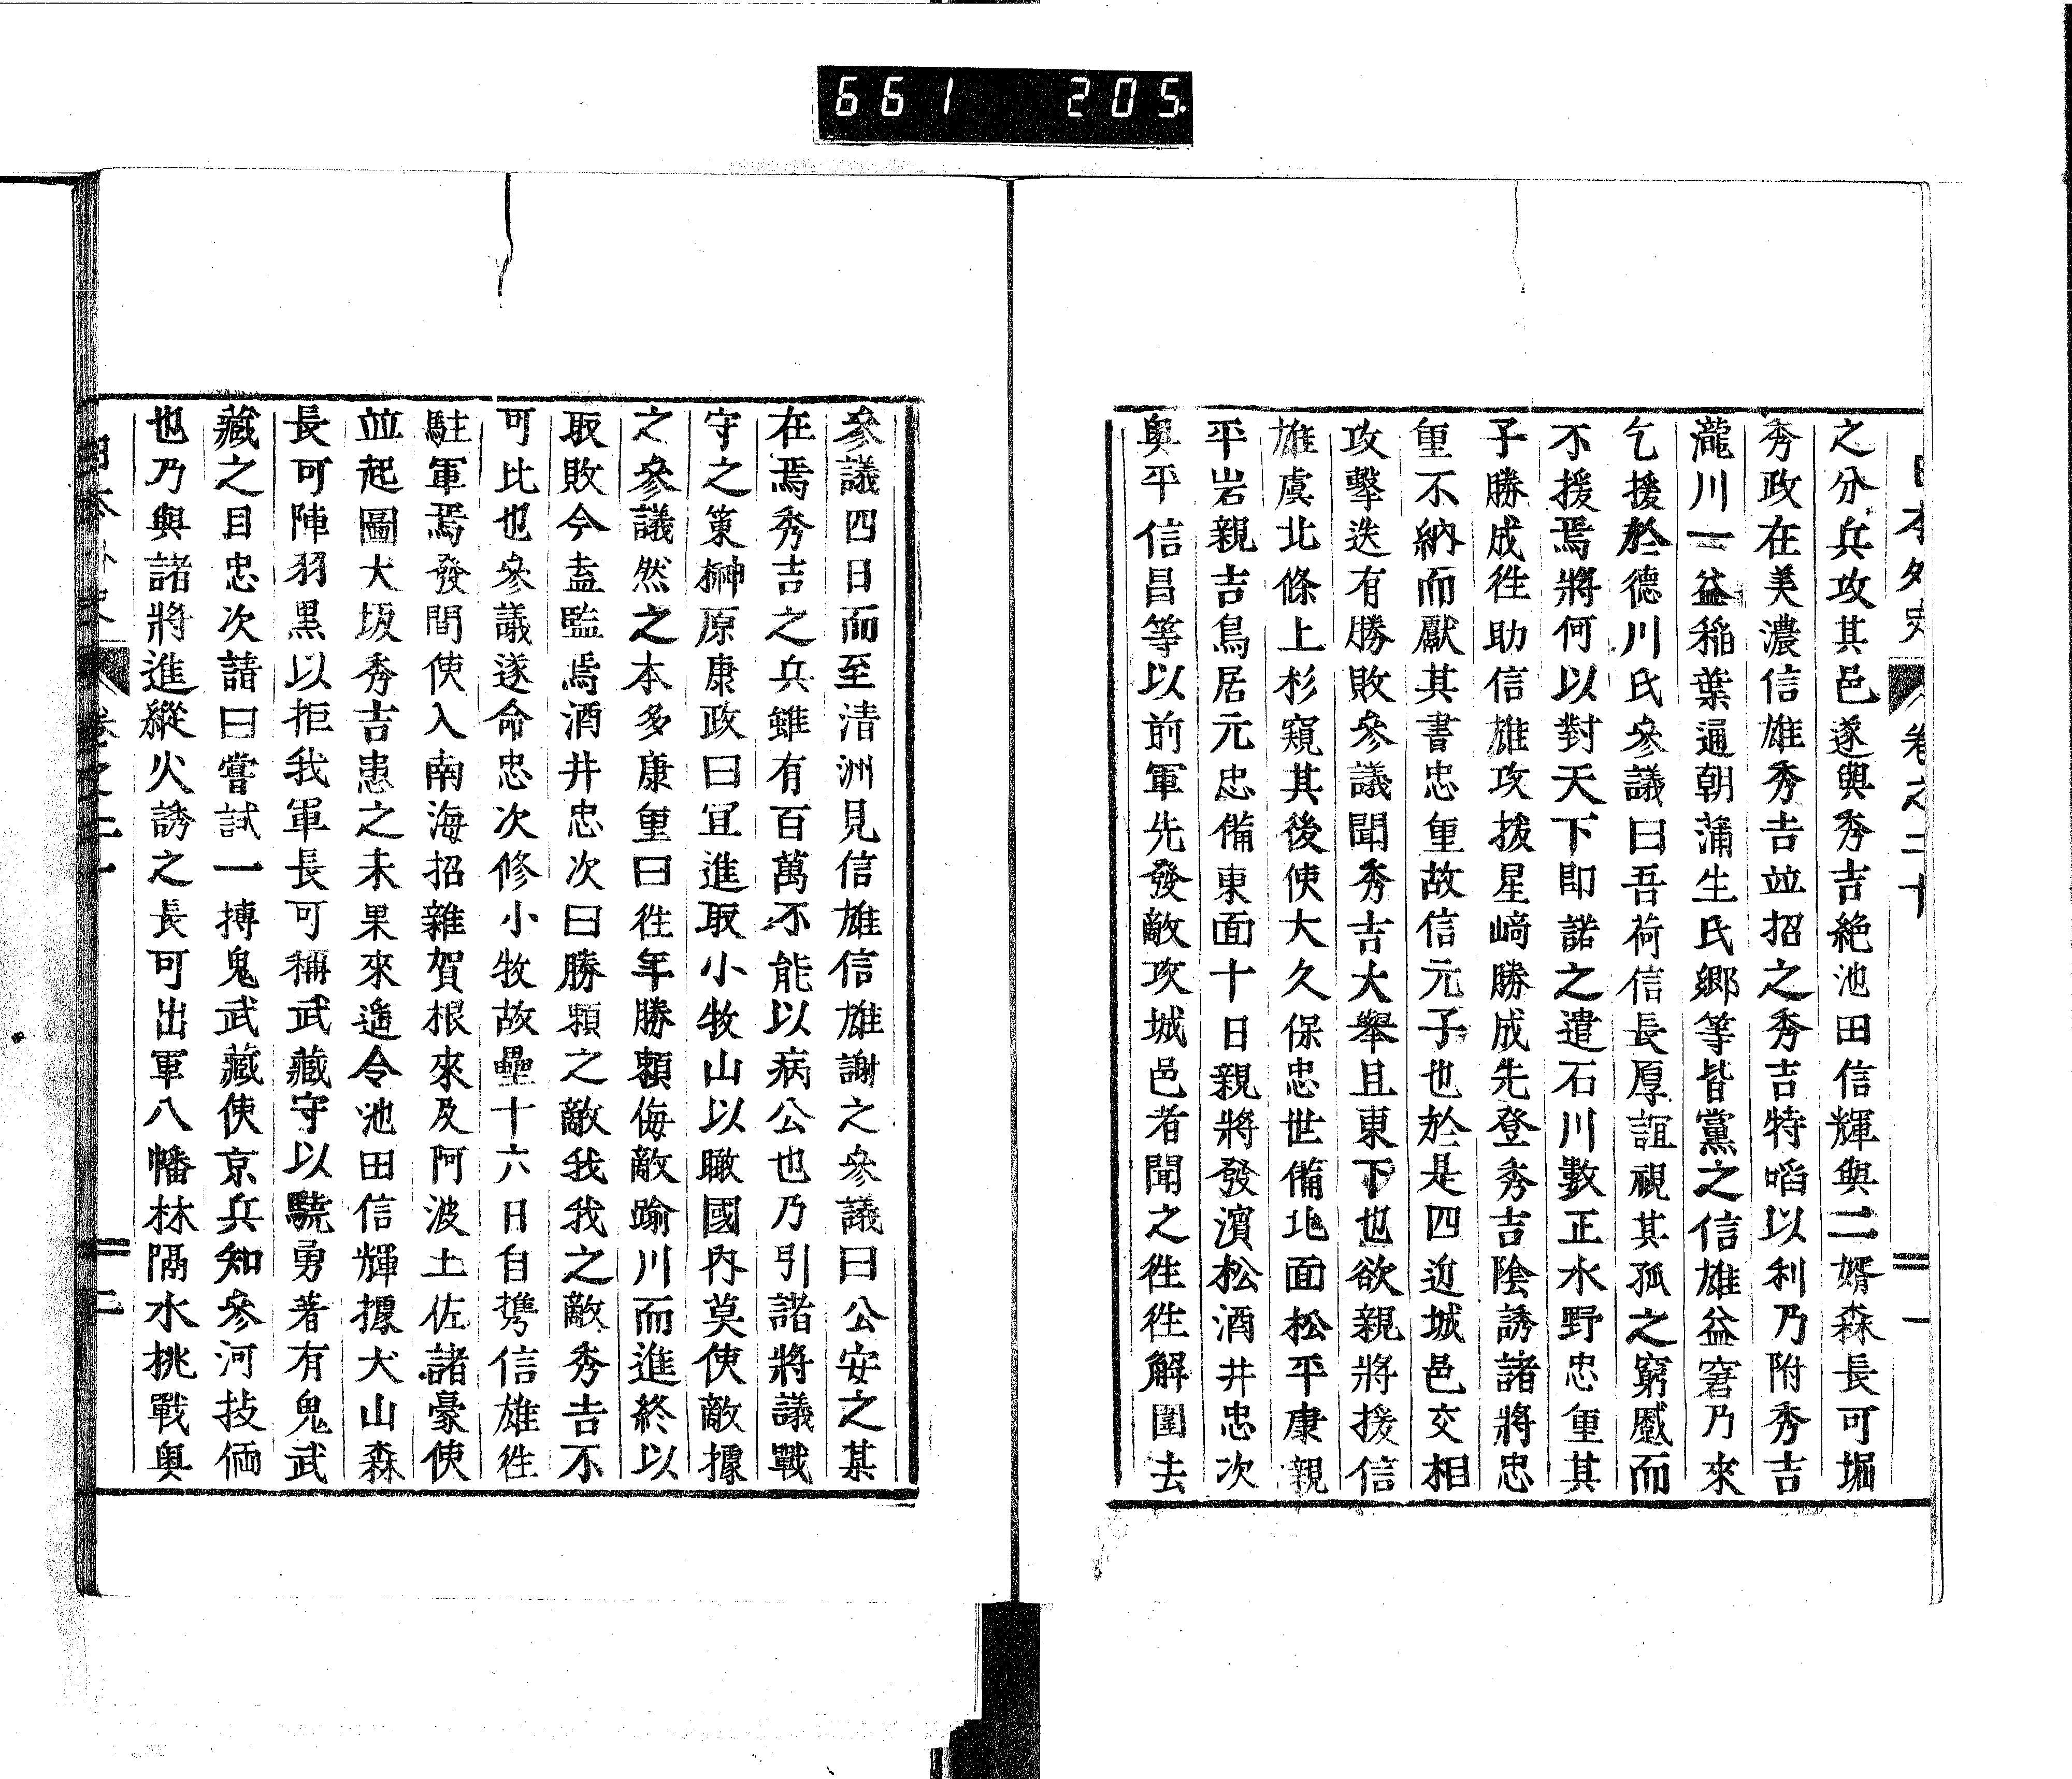 661 205
之分兵攻其邑遂與秀吉絶池田信輝與二婿森長可堀
秀政在美濃信雄秀吉並招之秀吉特啗以利乃附秀吉
瀧川一益稲葉通朝蒲生氏郷等皆黨之信雄益窘乃來
乞援於德川氏參議曰吾荷信長厚誼視其孤之窮慼而
不援焉將何以對天下卽諾之遣石川數正水野忠重其
子勝成徃助信雄攻拔星﨑勝成先登秀吉陰誘諸將忠
重不納而獻其書忠重故信元子也於是四近城邑交相
攻擊迭有勝敗參議聞秀吉大舉且東下也欲親將援信
雄虞北條上杉窺其後使大久保忠世備北面松平康親
平岩親吉鳥居元忠備東面十日親將發濱松酒井忠次
奥平信昌等以前軍先發敵攻城邑者聞之徃徃解圍去
參議四日而至清洲見信雄信雄謝之參議曰公安之某
在焉秀吉之兵雖有百萬不能以病公也乃引諸將議戰
守之策榊原康政曰宜進取小牧山以瞰國內莫使敵據
之參議然之本多康重曰徃年勝賴侮敵踰川而進終以
取敗今盍監焉酒井忠次曰勝賴之敵我我之敵秀吉不
可比也參議遂命忠次修小牧故壘十六日自携信雄徃
駐軍焉發間使入南海招雜賀根來及阿波土佐諸豪使
並起圖大坂秀吉患之未果來遙令池田信輝據犬山森
長可陣羽黒以拒我軍長可稱武藏守以驍勇著有鬼武
藏之目忠次請曰嘗試一搏鬼武藏使京兵知參河技倆
也乃與諸將進縱火誘之長可出軍八幡林隔水挑戰奥